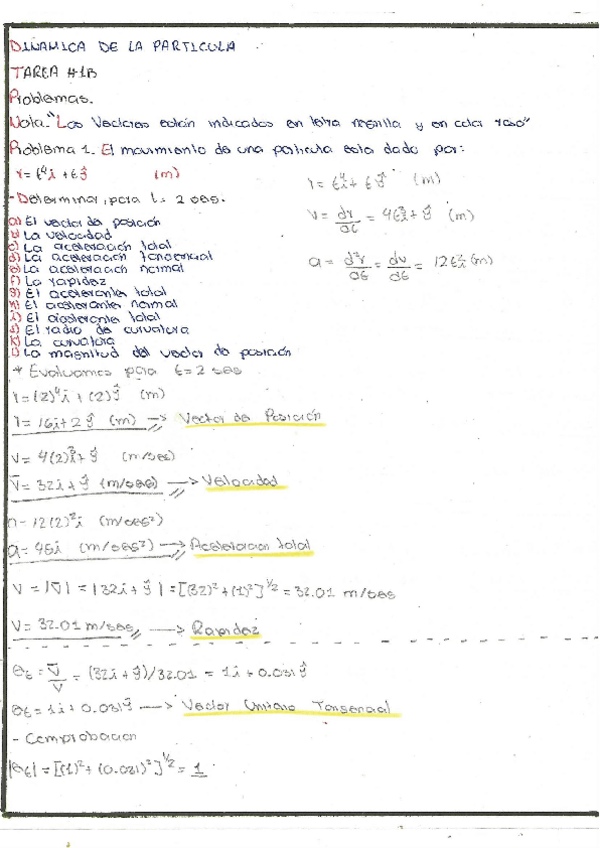 DINAMICA DE LA PARTICULA
TAREA #1B
Problemas.
Nota: "Los Vectores están indicados en letra negrilla y en color rojo"
Problema 1. El movimiento de una particula esta dado por:
r = t⁴i + tĵ (m)
- Determinar, para t = 2 seg.
a) El vector de posición
b) La velocidad
c) La aceleración total
d) La aceleración tangencial
e) La aceleración normal
f) La rapidez
g) El acelerante total
h) El acelerante normal
i) El acelerante total
j) El radio de curvatura
k) La curvatura
l) La magnitud del vector de posición
r = t⁴i + tĵ (m)
v = dr/dt = 4t³i + ĵ (m)
a = d²r/dt = dv/dt = 12t²i (m)
* Evaluamos para t = 2 seg
r = (2)⁴i + (2)ĵ (m)
r = 16i + 2ĵ (m) → Vector de Posición
v = 4(2)³i + ĵ (m/seg)
v̄ = 32i + ĵ (m/seg) → Velocidad
a = 12(2)²i (m/seg²)
a = 48i (m/seg²) → Aceleracion total
v = |v̄| = |32i + ĵ| = [(32)² + (1)²]^1/2 = 32.01 m/seg
v = 32.01 m/seg → Rapidez
et = v̄/v = (32i + ĵ)/32.01 = 1i + 0.031ĵ
et = 1i + 0.031ĵ → Vector Unitario Tangencial
- Comprobacion
|et| = [(1)² + (0.031)²]^1/2 = 1